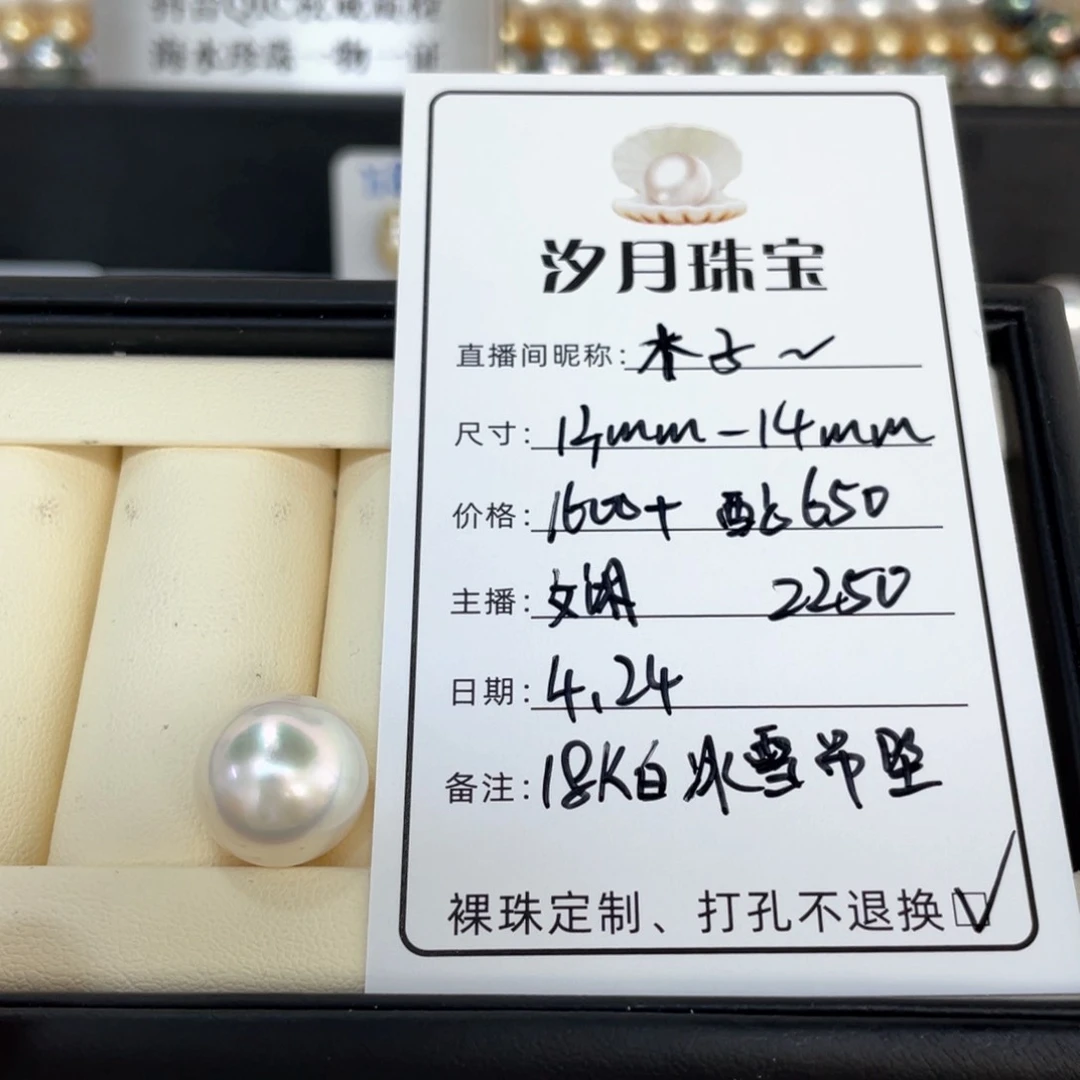 海水珍珠一物一证
汐月珠宝
直播间昵称: 木子~
尺寸: 13mm-14mm
价格: 1600+ 配 650
主播: 文湖 2250
日期: 4.24
备注: 18K白冰雪吊坠
裸珠定制、打孔不退换